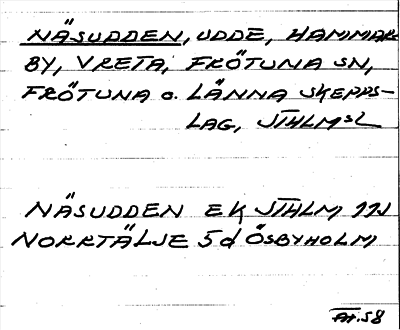 NÄSUDDEN, UDDE, HAMMAR-
BY, VRETA, FRÖTUNA SN,
FRÖTUNA o. LÄNNA SKEPPS-
LAG, STHLMSL
NÄSUDDEN EK STHLM 11J
NORRTÄLJE 5d ÖSBYHOLM